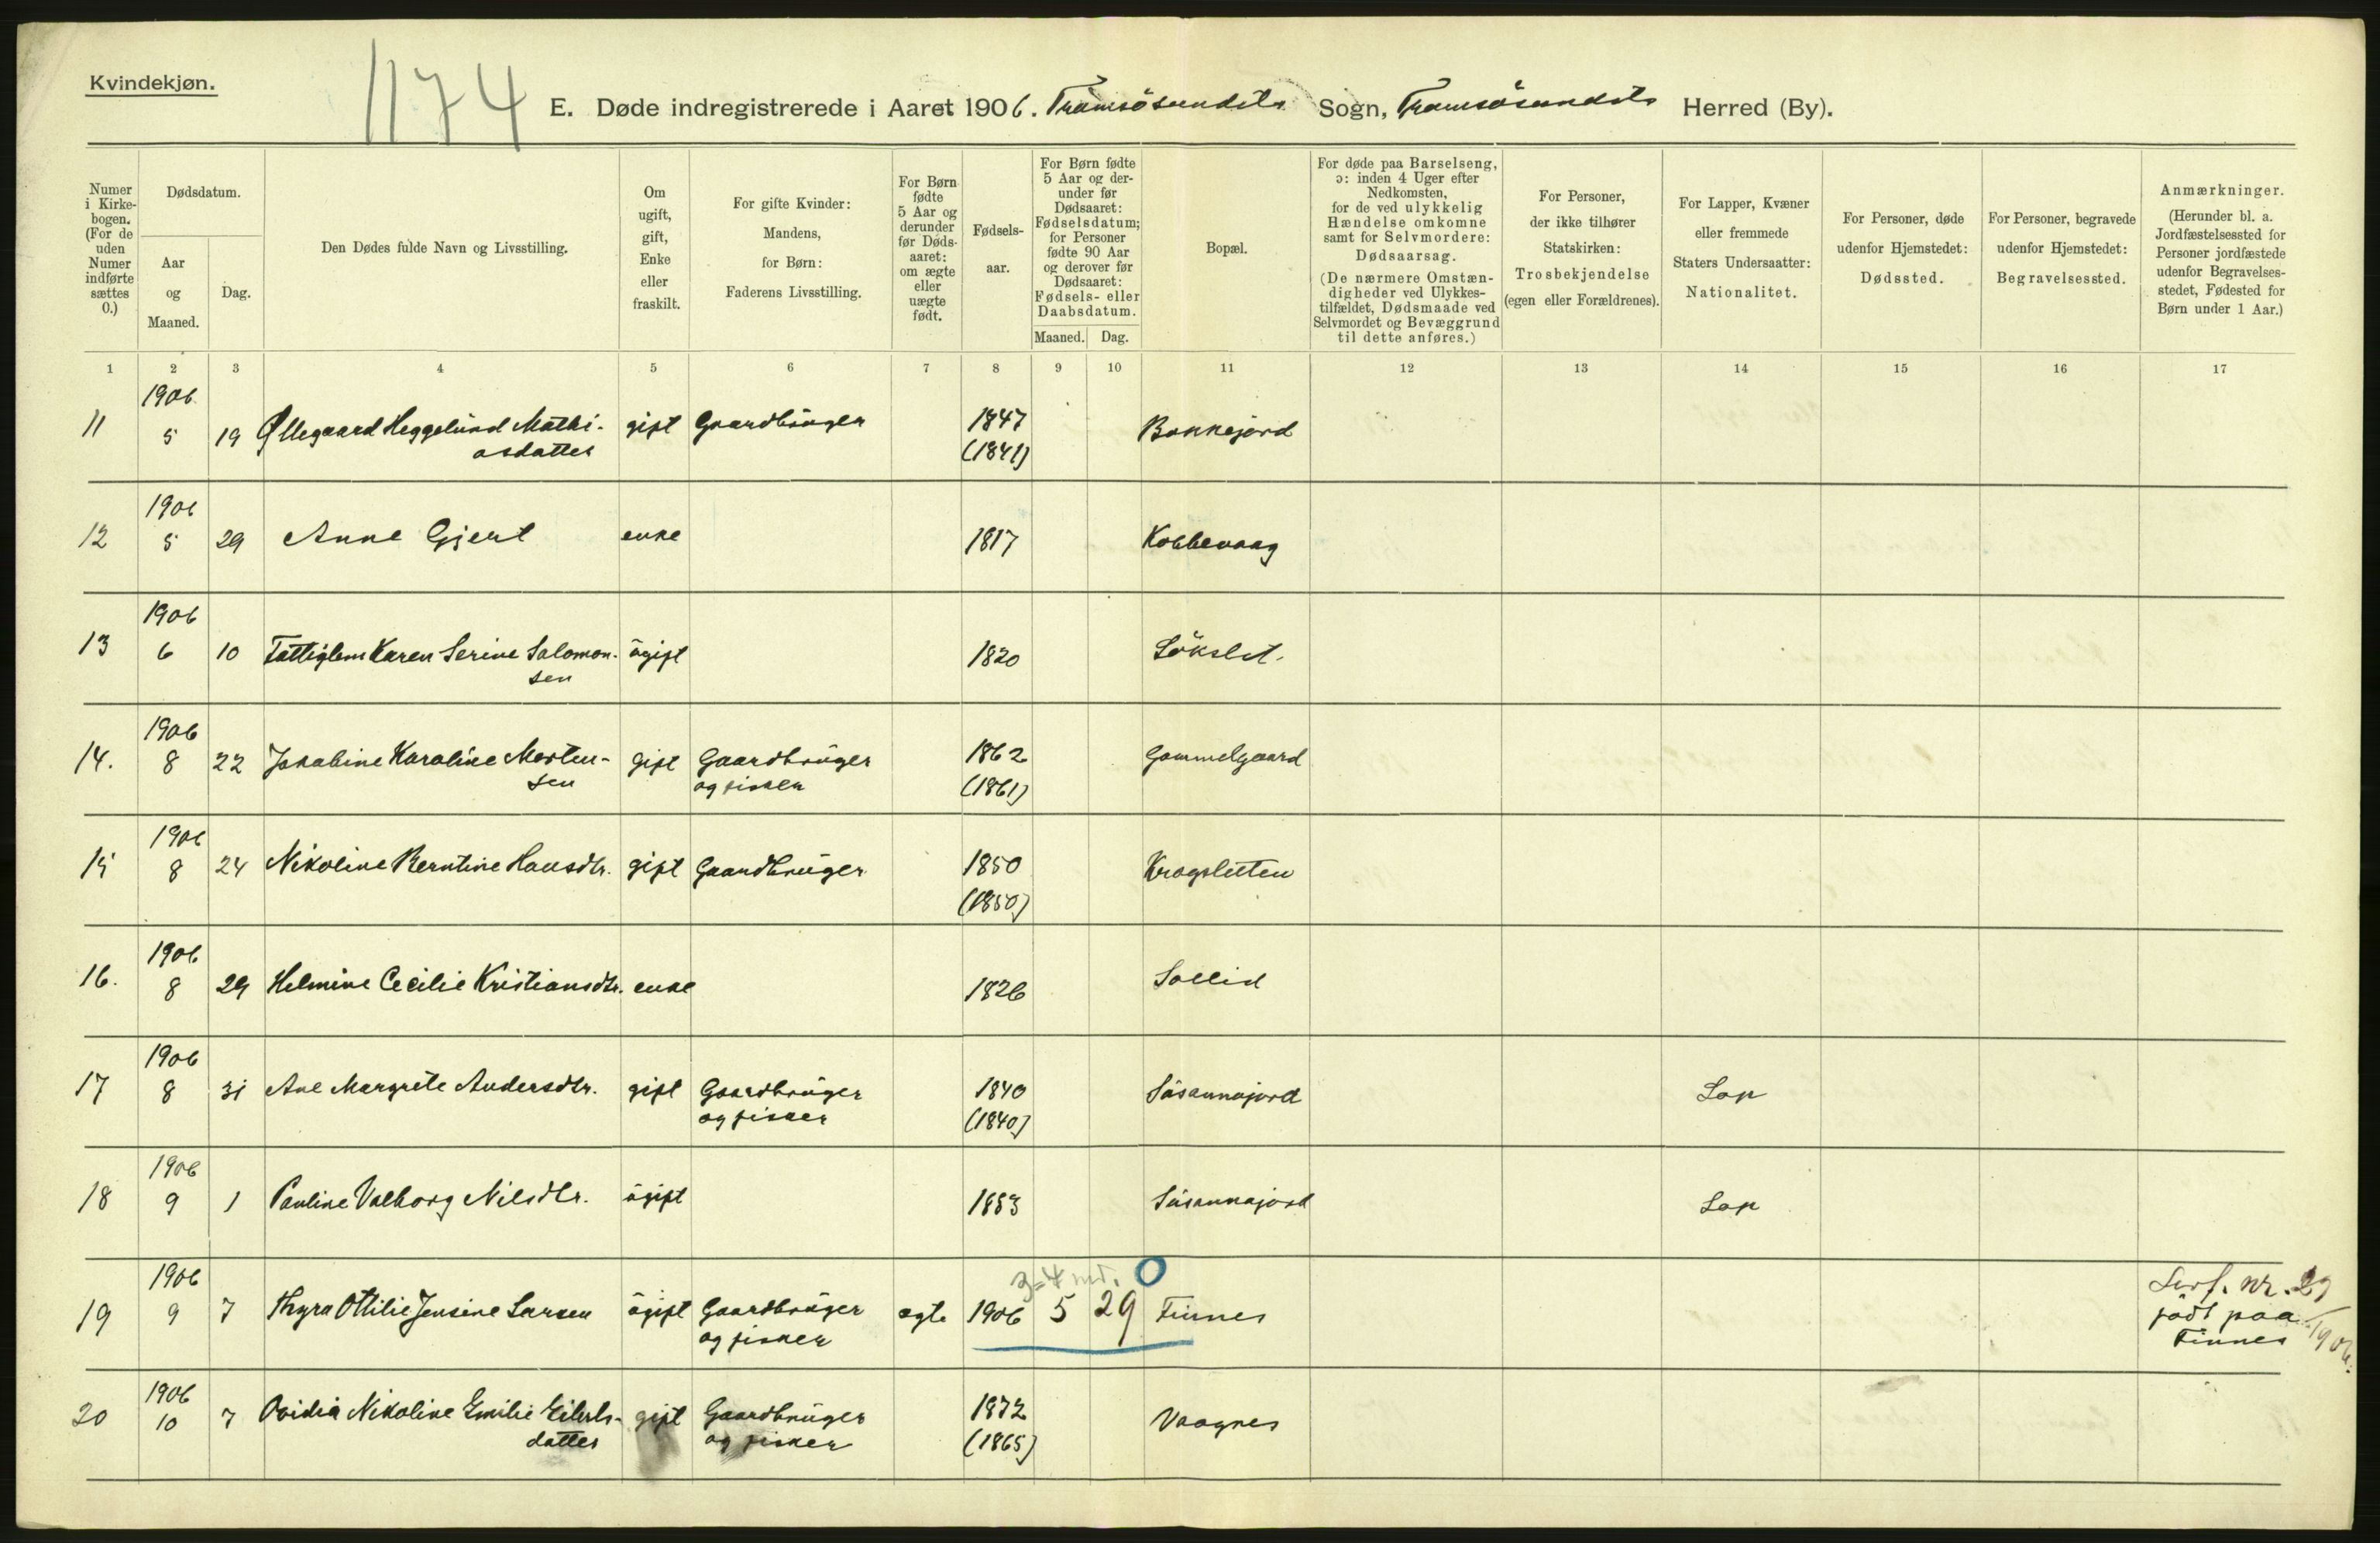 Kvindekjøn.
1174
E. Døde indregistrerede i Aaret 1906. Tromsösundets Sogn, Tromsösundets Herred (By).
Numer i Kirkebogen. (For de uden Numer indførte sættes 0.)
Dødsdatum.
Aar og Maaned.
Dag.
Den Dødes fulde Navn og Livsstilling.
Om ugift, gift, Enke eller fraskilt.
For gifte Kvinder: Mandens, for Børn: Faderens Livsstilling.
For Børn fødte 5 Aar og derunder før Dødsaaret: om ægte eller uægte født.
Fødselsaar.
For Børn fødte 5 Aar og derunder før Dødsaaret: Fødselsdatum; for Personer fødte 90 Aar og derover før Dødsaaret: Fødsels- eller Daabsdatum.
Maaned. Dag.
Bopæl.
For døde paa Barselseng, ɔ: inden 4 Uger efter Nedkomsten, for de ved ulykkelig Hændelse omkomne samt for Selvmordere: Dødsaarsag.
(De nærmere Omstændigheder ved Ulykkestilfældet, Dødsmaade ved Selvmordet og Bevæggrund til dette anføres.)
For Personer, der ikke tilhører Statskirken: Trosbekjendelse (egen eller Forældrenes).
For Lapper, Kvæner eller fremmede Staters Undersaatter: Nationalitet.
For Personer, døde udenfor Hjemstedet: Dødssted.
For Personer, begravede udenfor Hjemstedet: Begravelsessted.
Anmærkninger.
(Herunder bl. a. Jordfæstelsessted for Personer jordfæstede udenfor Begravelsesstedet, Fødested for Børn under 1 Aar.)
1 2 3 4 5 6 7 8 9 10 11 12 13 14 15 16 17
1906
11 5 19 Øllegaard Heggelund Mathi- gift Gaardbrüger 1847 Bakkejord
asdatter (1841)
1906
12 5 29 Anne Gjert enke 1817 Kobbevaag
1906
13 6 10 Fattiglem Karen Serine Salomon- ügift 1820 Lökslet.
sen
1906
14. 8 22 Jakabine Karoline Morten- gift Gaardbrüger 1862 Gammelgaard
sen og fisker (1861)
1906
15 8 24 Nikoline Berntine Hansdtr. gift Gaardbrüger 1850 Kragsletten
(1850)
1906
16. 8 29 Helmine Cecilie Kristiansdtr. enke 1826 Sollid
1906
17 8 31 Ane Margrete Andersdtr. gift Gaardbrüger 1840 Süsannajord Lap
og fisker (1840)
1906
18 9 1 Pauline Valborg Nilsdtr. ügift 1883 Süsannajord Lap
1906 3-4 md. 0
19 9 7 Thyra Ottilie Jensine Larsen ügift Gaardbrüger ægte 1906 5 29 Finnes
og fisker
nr. 29
födt paa
Finnes
1906.
1906
20 10 7 Ovidia Nikoline Emilie Eilerts- gift Gaardbrüger 1872 Vaagnes
datter og fisker (1865)